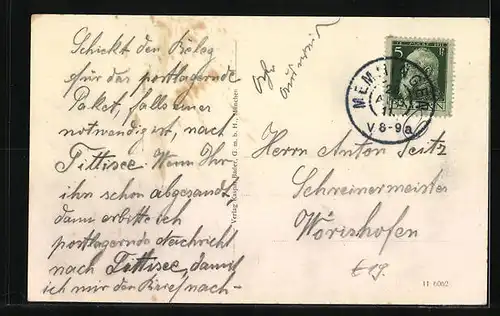 Schickt den Beleg
für das postlagernde
Paket, falls einer
notwendig ist, nach
Tittisee. Wenn Ihr
ihn schon abgesandt
dann erbitte ich
postlagernde Nachricht
nach Tittisee, damit
ich mir den Brief nach-
Verlag Kaspar Bader, G. m. b. H., München
5
MEMMINGEN
11
V 8-9a
Herrn Anton Seitz
Schreinermeister
Wörishofen
11 6062